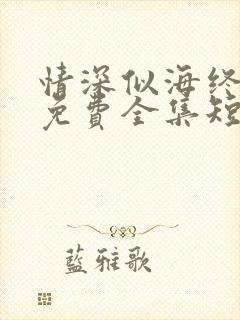 情深似海终
免費全集短
藍雅歌